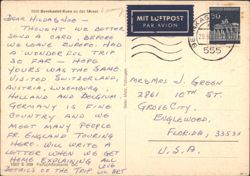 5550 Bernkastel-Kues an der Mosel
DEAR HILDA & JOE —
THOUGHT WE BETTER
SEND A CARD, BEFORE
WE LEAVE EUROPE. HAD
A WONDERFUL TRIP
SO FAR — HOPE
YOURS WAS THE SAME.
VISITED SWITZERLAND,
AUSTRIA, LUXEMBURG,
HOLLAND AND BELGIUM.
GERMANY IS FINE
COUNTRY AND WE
MEET MANY PEOPLE
FR ENGLAND TOURING
HERE. WILL WRITE A
LETTER WHEN WE GET
HOME EXPLAINING ALL
DETAILS OF THE TRIP
MIT LUFTPOST
PAR AVION
50
555
MR & MRS J. GREEN
2861 10TH ST.
GROVE CITY,
ENGLEWOOD,
FLORIDA, 33533
U.S.A.